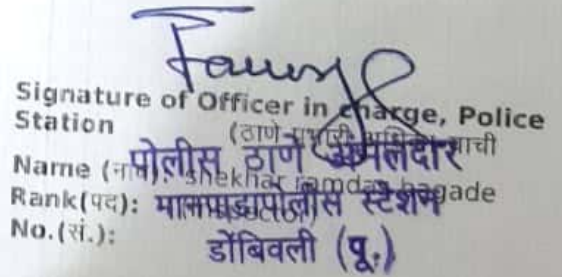 Signature of Officer in charge, Police
Station
(ठाणे प्रभारी अधिकाऱ्याची
पोलीस ठाणे अंमलदार
Name (नाव): Shekhar ramdas bagade
Rank(पद):
मानपाडा पोलीस स्टेशन
No.(सं.):
डोंबिवली (पू.)